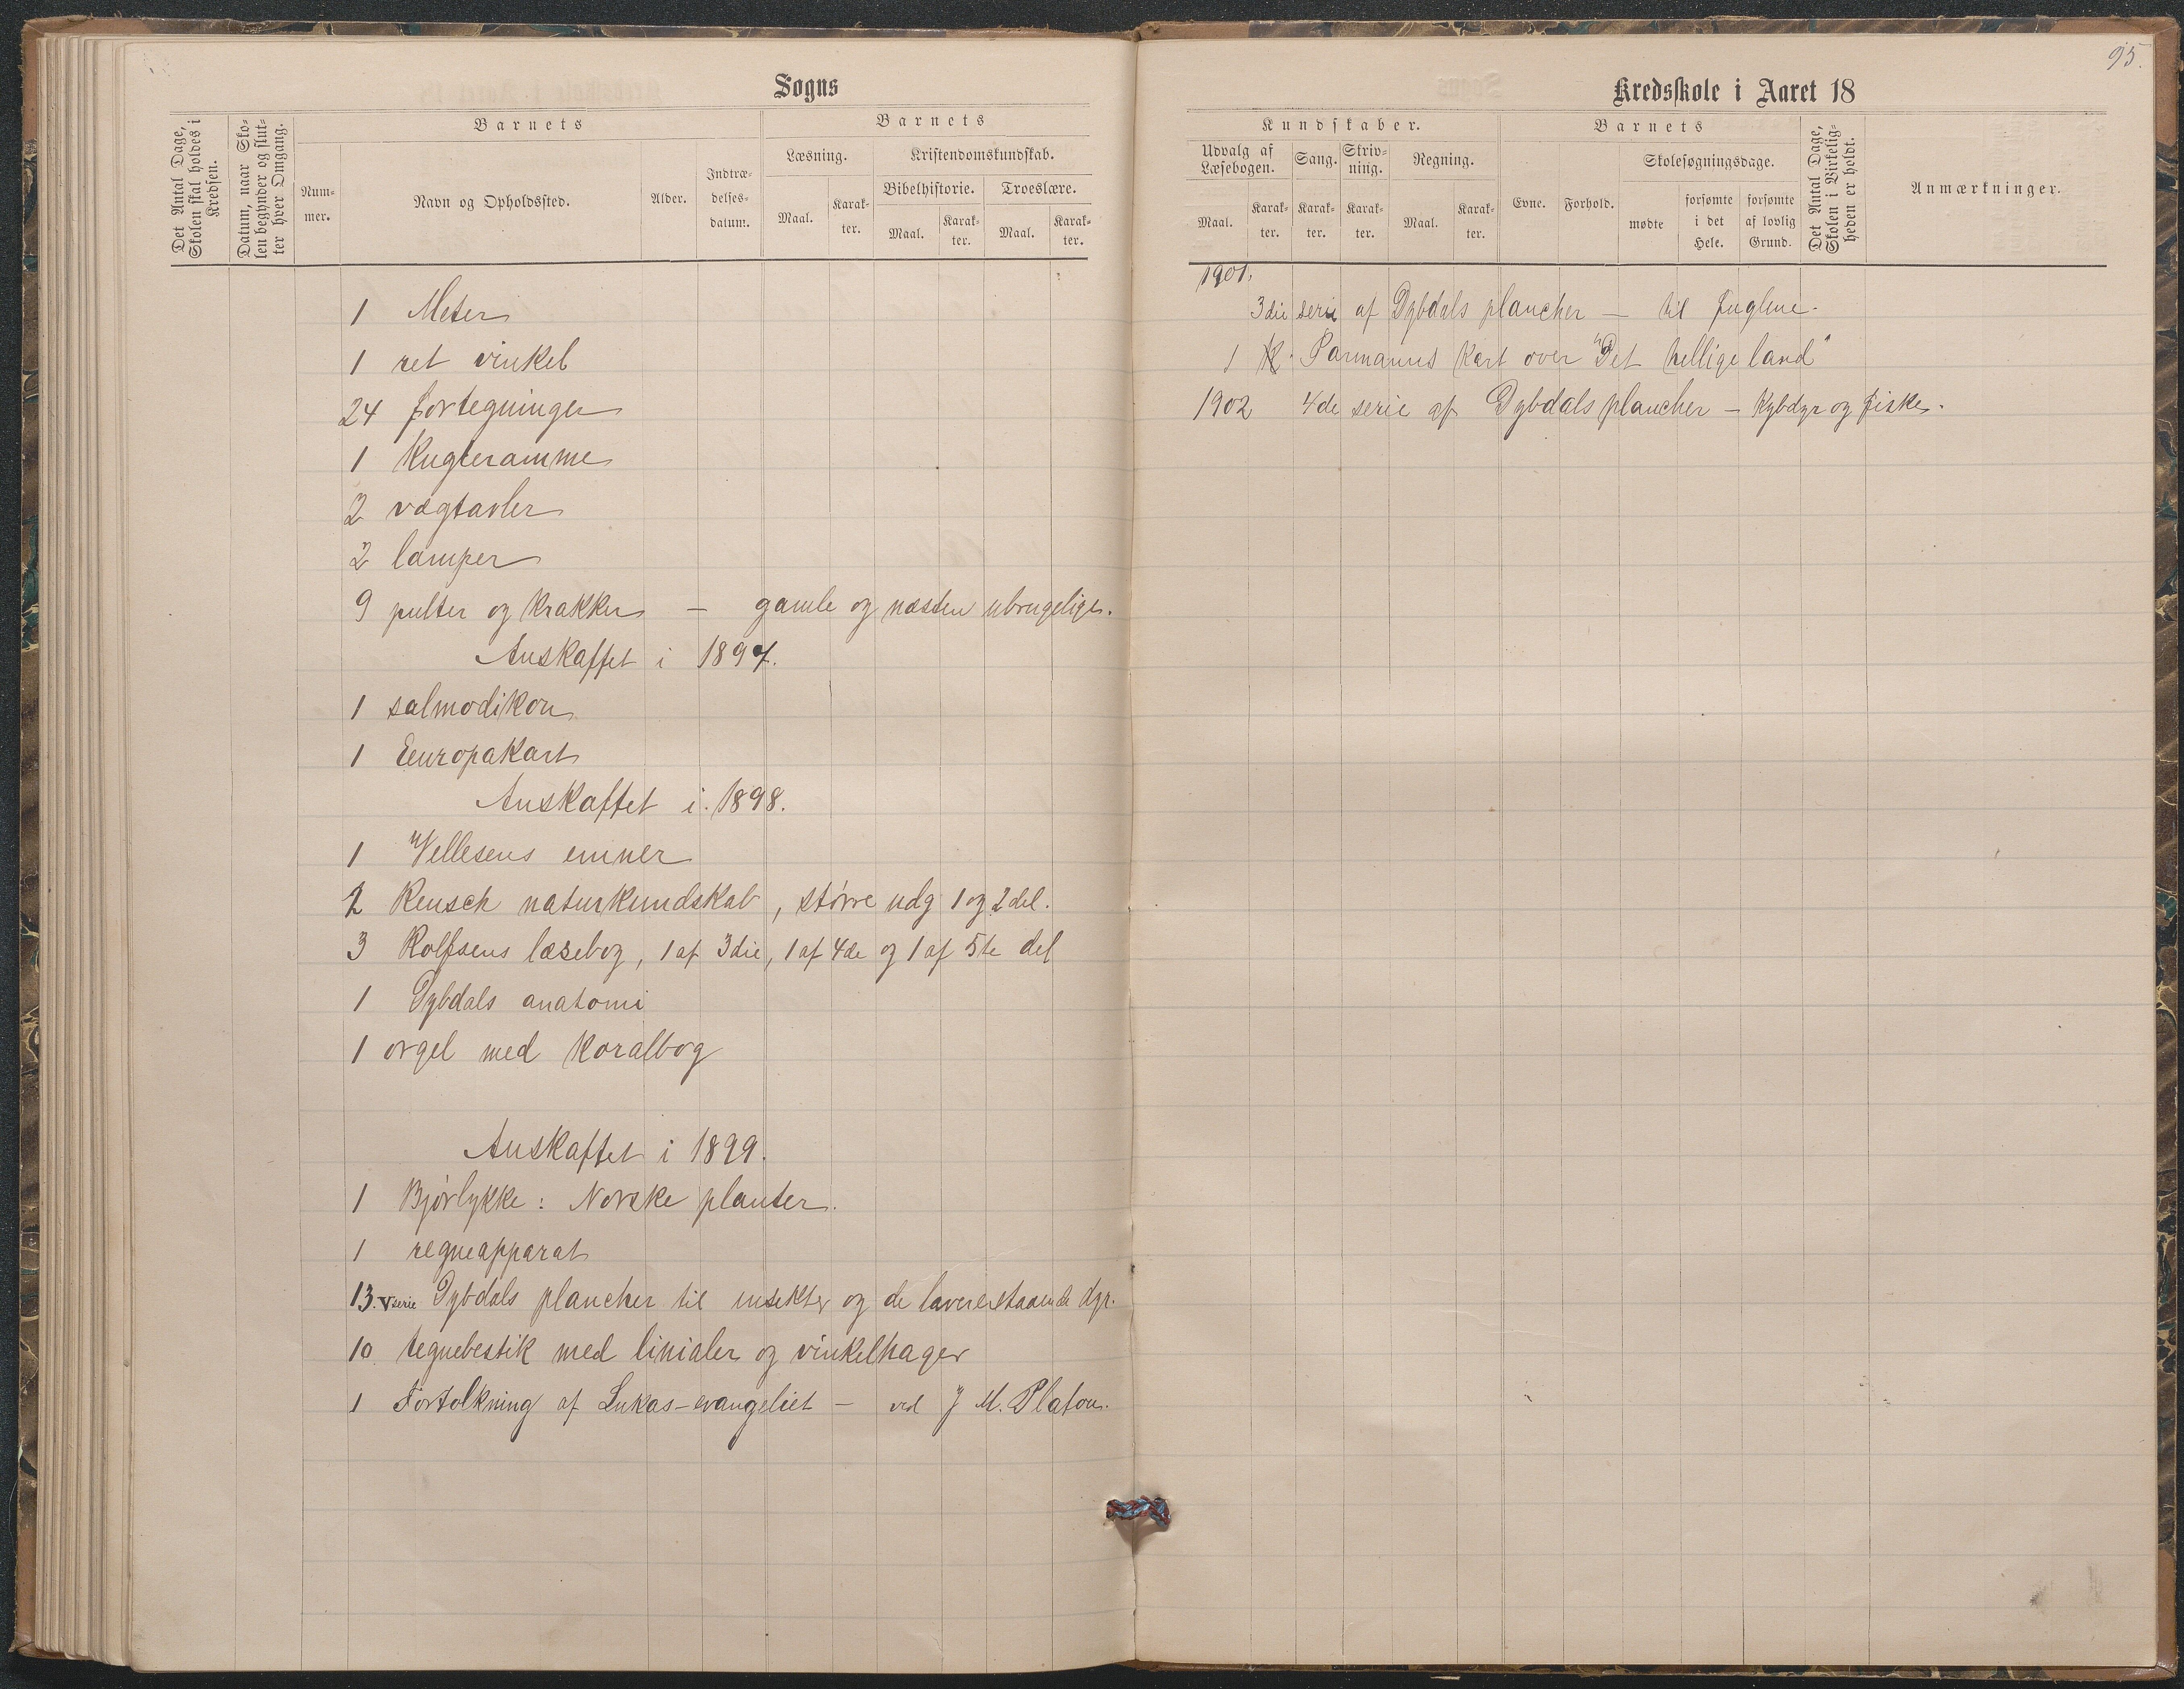 Sogns
Det Antal Dage, Skolen skal holdes i Kredsen.
Datum, naar Skolen begynder og slutter hver Omgang.
Barnets
Nummer.
Navn og Opholdssted.
Alder.
Indtrædelsesdatum.
Barnets
Læsning.
Maal.
Karakter.
Kristendomskundskab.
Bibelhistorie.
Maal.
Karakter.
Troeslære.
Maal.
Karakter.
1 Meter
1 ret vinkel
24 fortegninger
1 Kugleramme
2 vægtavler
2 lamper
9 pulter og krakker — gamle og næsten ubrugelige.
Anskaffet i 1897.
1 salmodikon
1 Eeuropakart
Anskaffet i 1898.
1 Vellesens emner
2 Reusch naturkundskab, større udg 1 og 2 del.
3 Rolfsens læsebog, 1 af 3die, 1 af 4de og 1 af 5te del
1 Dybdals anatomi
1 orgel med koralbog
Anskaffet i 1899.
1 Bjørlykke: Norske planter.
1 regneapparat
13. V serie Dybdals plancher til insekter og de lavereestaaende dyr.
10 tegnebestik med linialer og vinkelhager
1 Fortolkning af Lukas-evangeliet — ved J M. Platou.
95.
Kredsskole i Aaret 18
Kundskaber.
Udvalg af Læsebogen.
Maal.
Karakter.
Sang.
Karakter.
Skrivning.
Karakter.
Regning.
Maal.
Karakter.
Barnets
Evne.
Forhold.
Skolesøgningsdage.
mødte
forsømte i det Hele.
forsømte af lovlig Grund.
Det Antal Dage, Skolen i Virkeligheden er holdt.
Anmærkninger.
1901.
3die serie af Dybdals plancher — til fuglene.
1 Parmanns kart over "Det hellige land"
1902 4de serie af Dybdals plancher — Kybdyr og fiske.